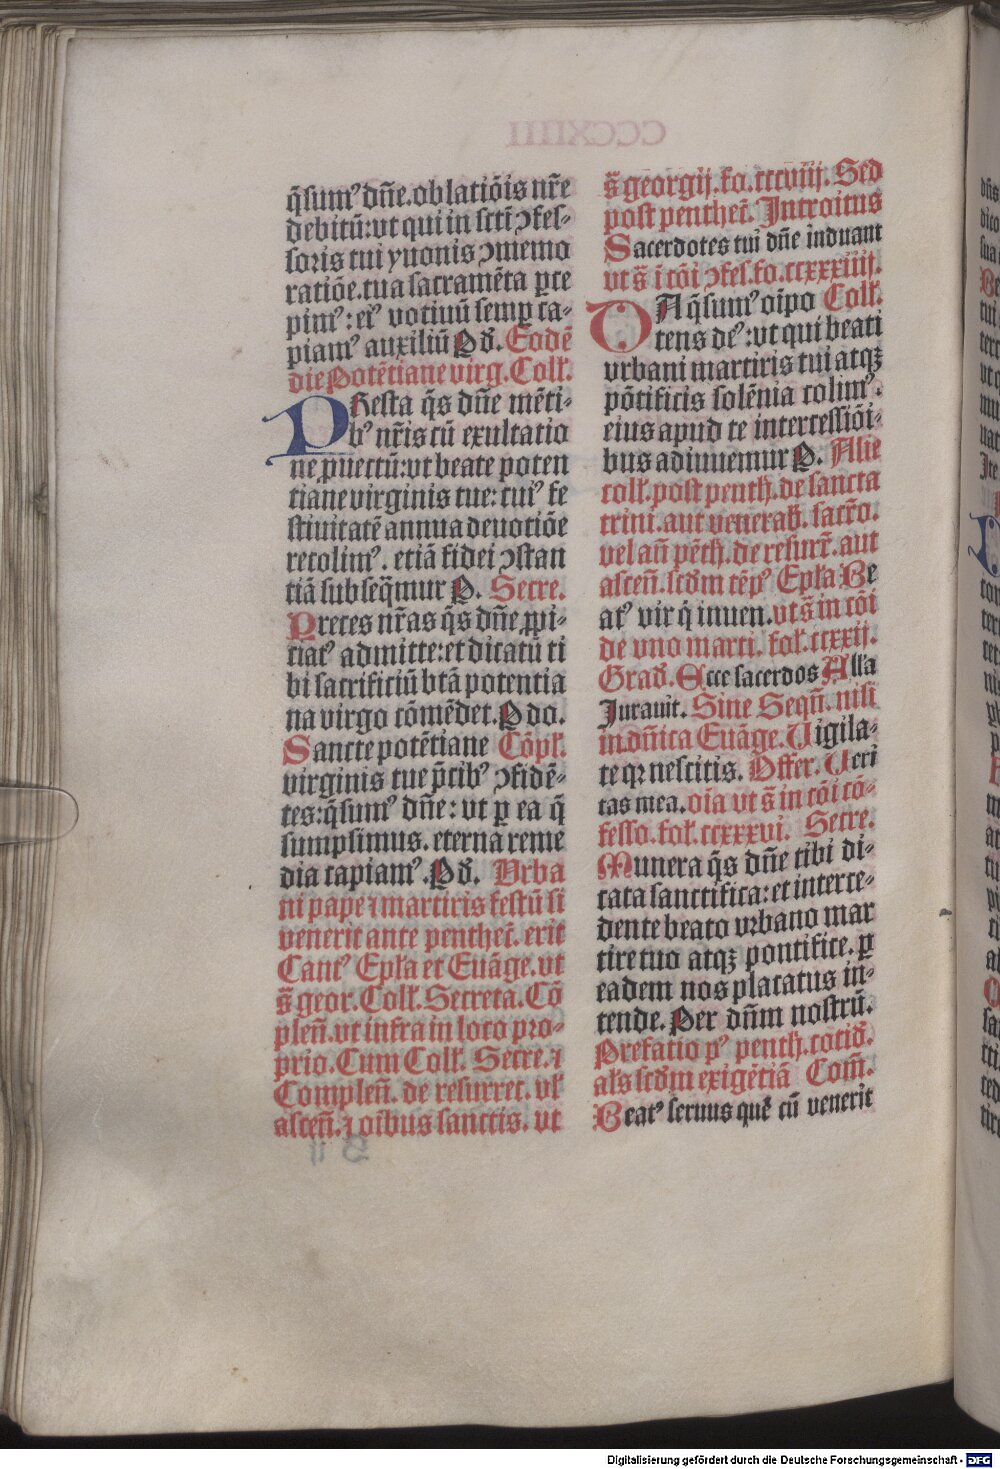 q̄sumꝰ dn̄e. oblatiōis nr̄e
debitū: vt qui in sct̄i ↄfes-
soris tui yuonis ↄmemo
ratiōe. tua sacramēta p̱ce
pimꝰ: eiꝰ votiuū semp̱ ca-
piamꝰ auxiliū Pd̕. Eodē
die Potētiane virg. Coll̕.
PResta q̄s dn̄e mēti-
bꝰ nr̄is cū exultatio
ne ꝓuectū: vt beate poten
tiane virginis tue: cuiꝰ fe
stiuitatē annua deuotiōe
recolimꝰ. etiā fidei ↄstan
tiā subseq̄mur P. Secre.
Preces nr̄as q̄s dn̄e ꝓpi-
ciatꝰ admitte: et dicatū ti
bi sacrificiū btā potentia
na virgo cōmēdet. P do.
Sancte potētiane Cōpl̕.
virginis tue p̄cibꝰ ↄfidē-
tes: q̄sumꝰ dn̄e: vt p̱ ea q̄
sumpsimus. eterna reme
dia capiamꝰ. Pd̕. Vrba
ni pape ⁊ martiris festū si
venerit ante penthec̄. erit
Cantꝰ Epl̕a et Euāge. vt
s̄ geor. Coll̕. Secreta. Cō
plen̄. vt infra in loco pro-
prio. Cum Coll̕. Secre. ⁊
Complen̄. de resurrec. vl̕
ascen̄. ⁊ oībus sanctis. vt
s̄ georgij. fo. cccviij. Sed
post penthec̄. Introitus
Sacerdotes tui dn̄e induant
vt s̄ ī cōi ↄfes. fo. ccxxxiiij.
DA q̄sumꝰ oīpo Coll̕.
tens deꝰ: vt qui beati
vrbani martiris tui atqꝫ
pōtificis solēnia colimꝰ.
eius apud te intercessiōi-
bus adiuuemur P. Alie
coll̕. post penth. de sancta
trini. aut venerab̕. sacr̄o.
vel an̄ pēth. de resurr̄. aut
ascen̄. scd̕m tēpꝰ Epl̕a Be
atꝰ vir q̄ inuen. vt s̄ in cōi
de vno marti. fol̕. ccxxij.
Grad̕. Ecce sacerdos All̕a
Jurauit. Sine Seqū. nisi
in dn̄ica Euāge. Uigila-
te qꝛ nescitis. Offer. Ueri
tas mea. oīa vt s̄ in cōi cō-
fesso. fol̕. ccxxxvi. Secre.
Munera q̄s dn̄e tibi di-
cata sanctifica: et interce-
dente beato vrbano mar
tire tuo atqꝫ pontifice. p̱
eadem nos placatus in-
tende. Per dn̄m nostrū.
Prefatio pꝰ penth. cotid̕.
al̕s scd̕m exigētiā Com̄.
Beatꝰ seruus quē cū venerit
Digitalisierung gefördert durch die Deutsche Forschungsgemeinschaft - DFG